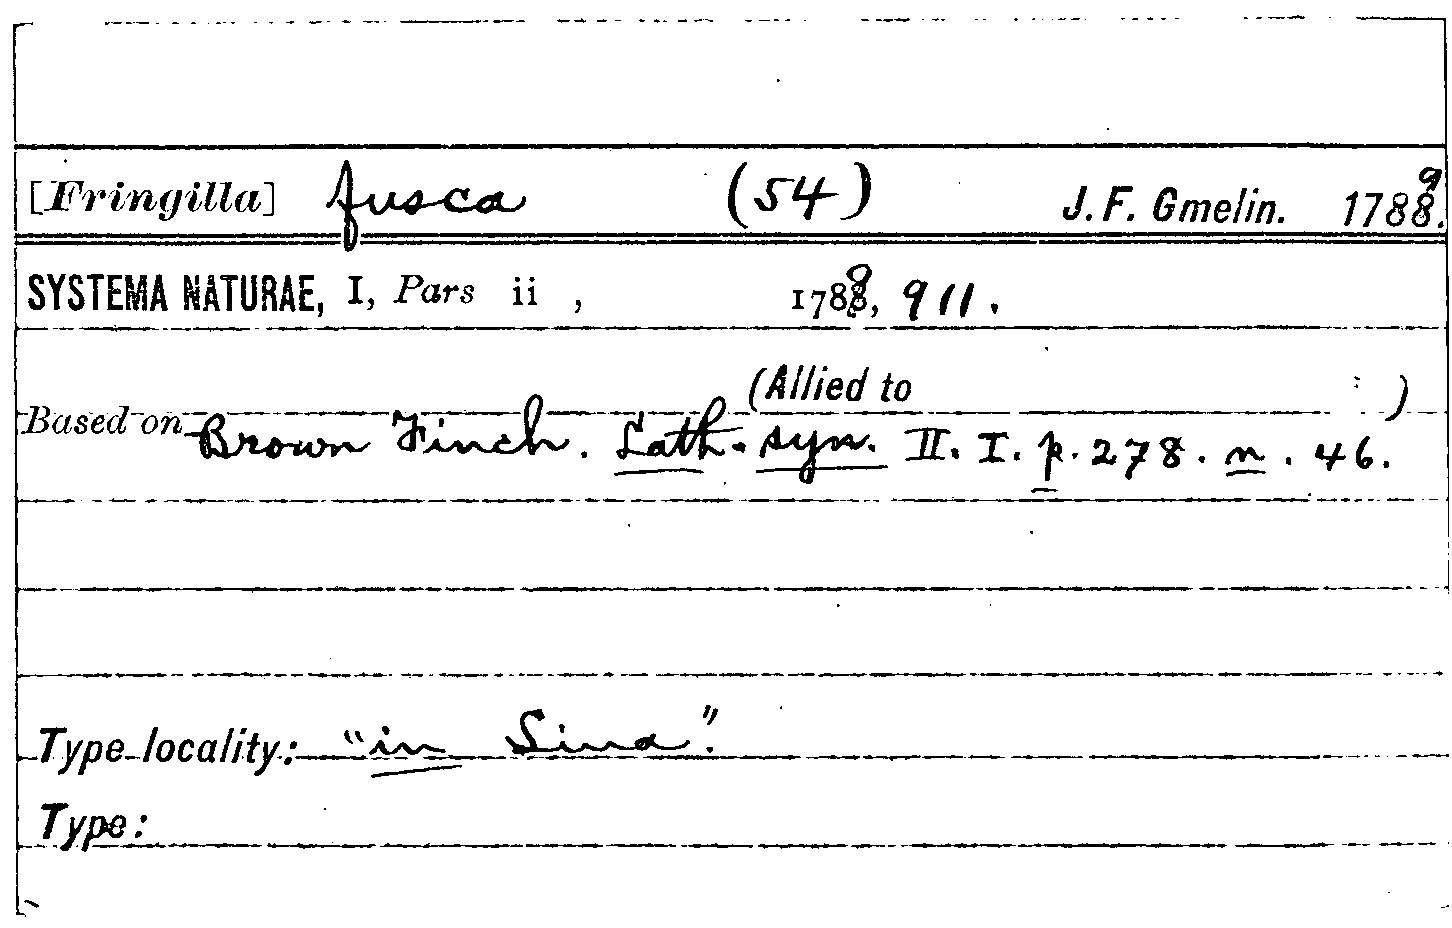 [Fringilla] fusca (54) J. F. Gmelin. 1789.
SYSTEMA NATURAE, I, Pars ii , 1789, 911.
(Allied to )
Based on Brown Finch. Lath. syn. II. I. p. 278. n. 46.
Type locality: "in Sina".
Type: